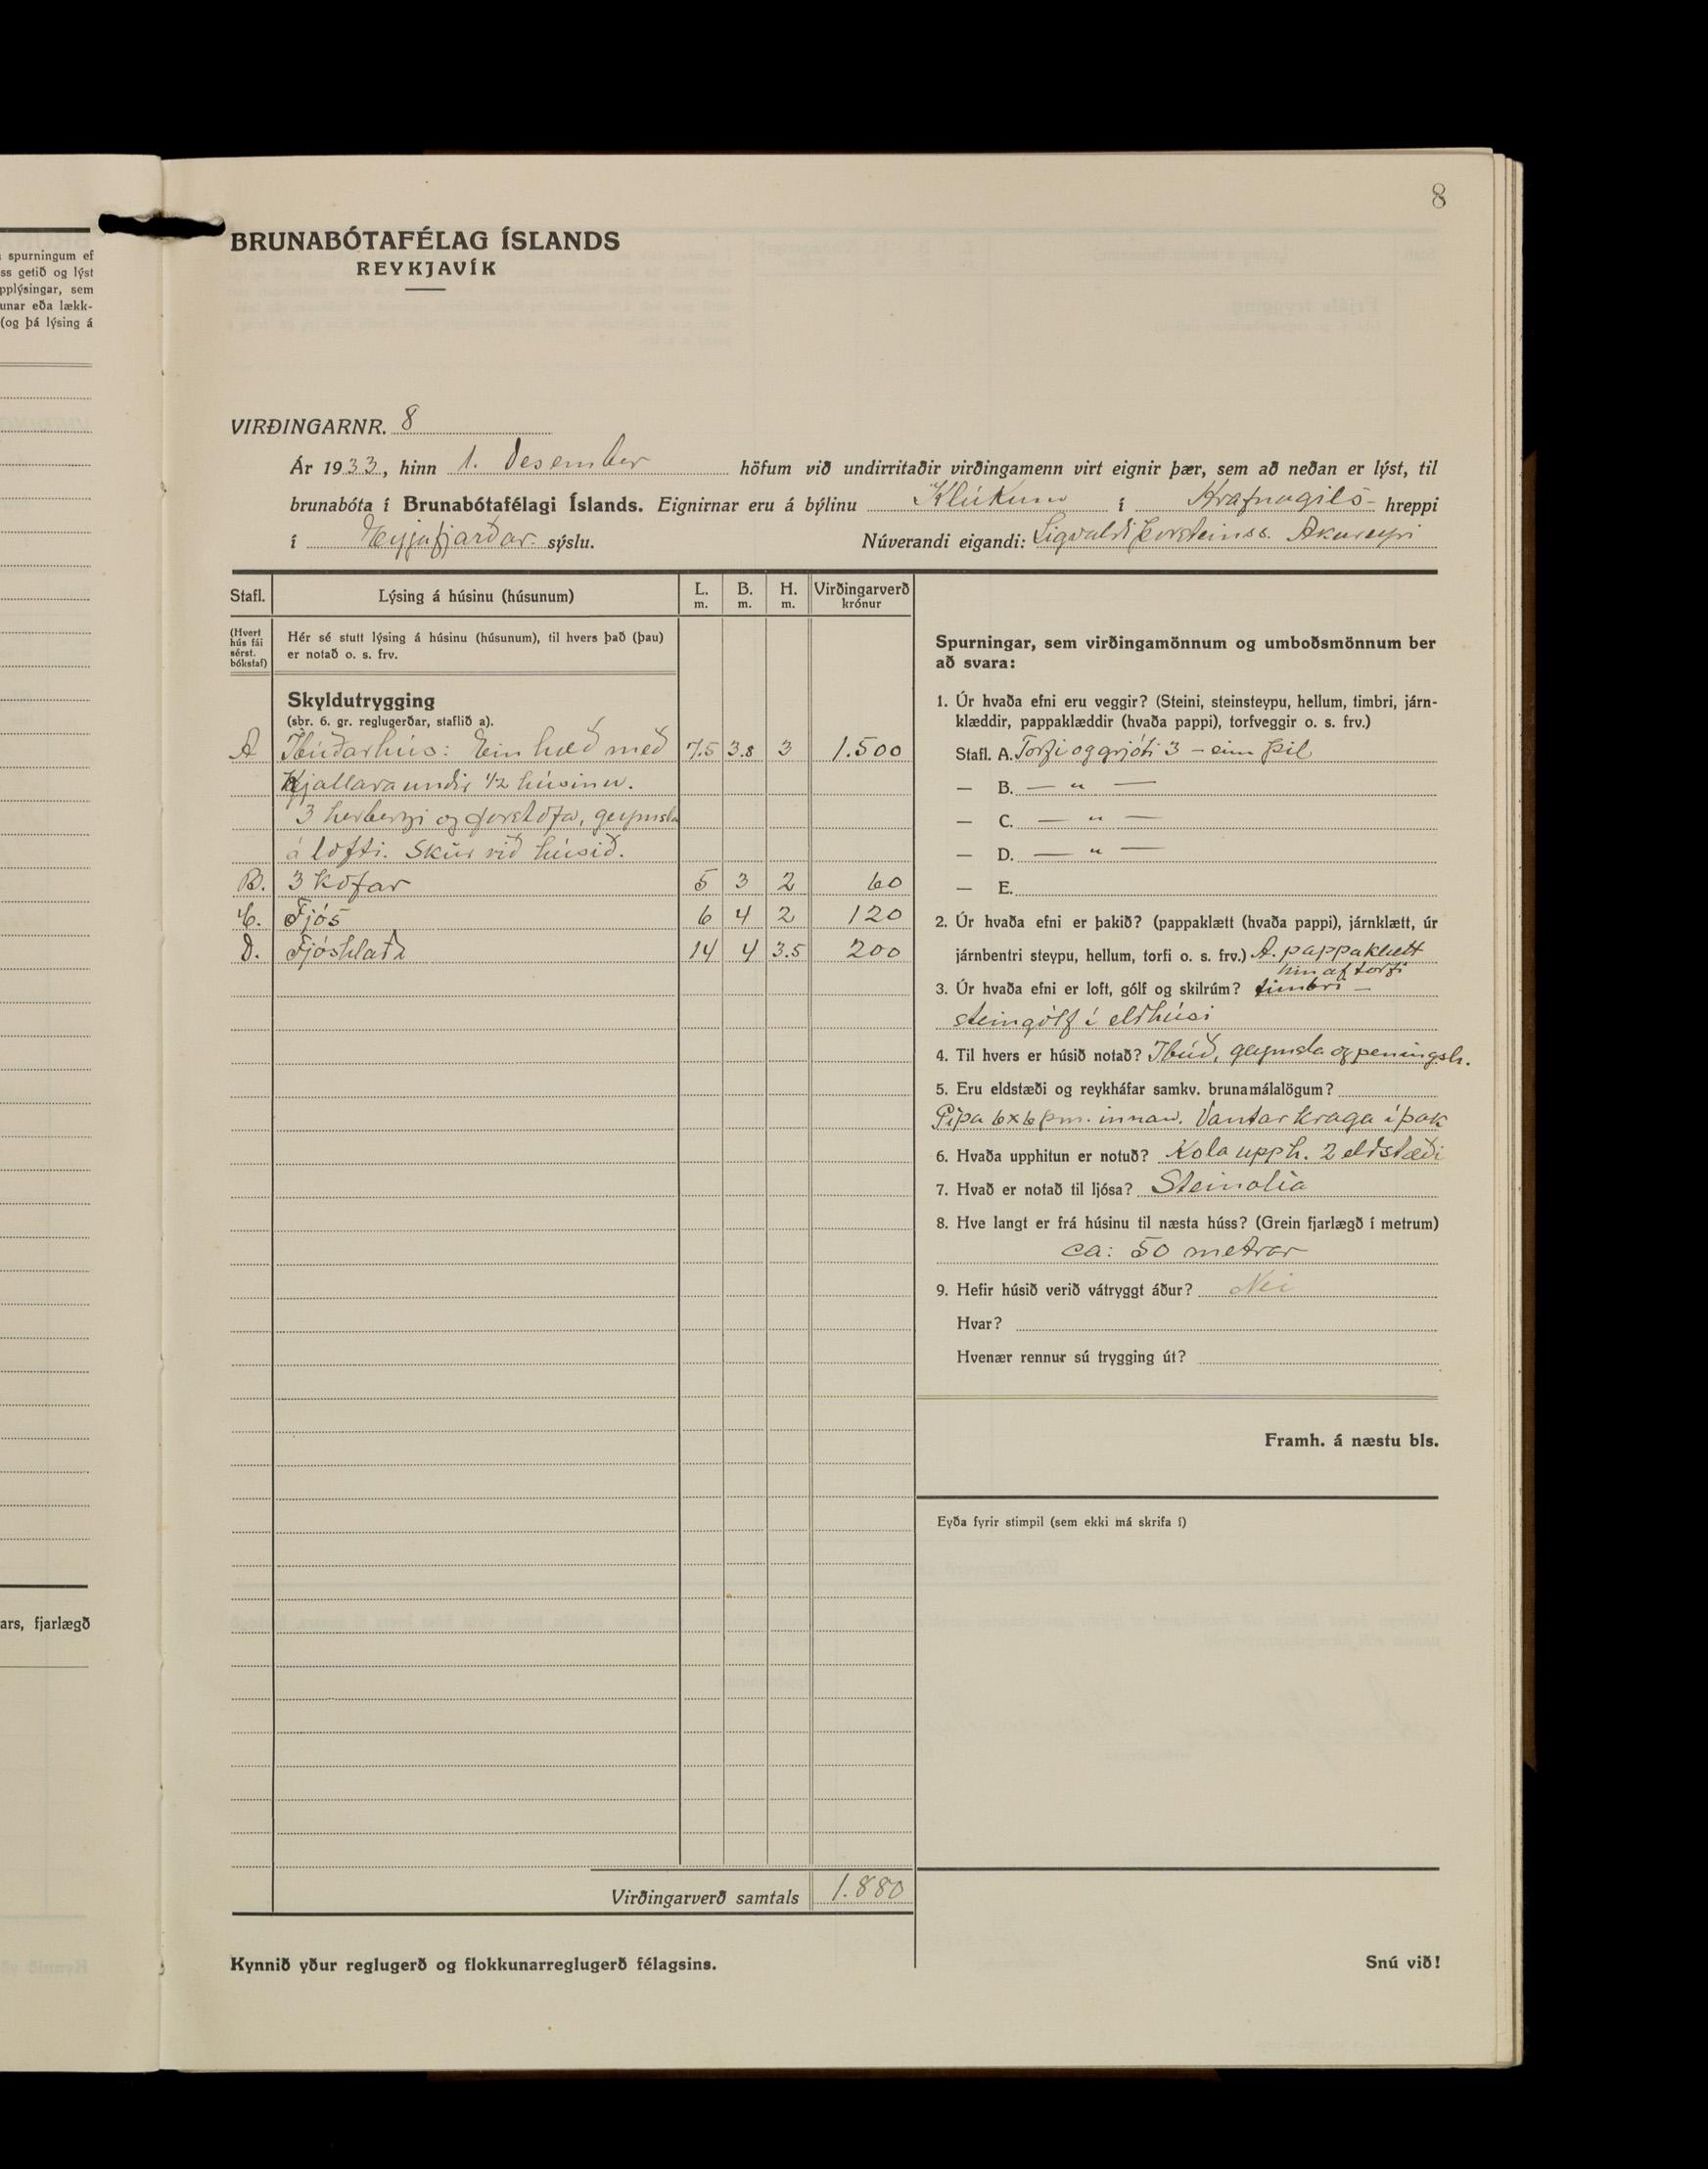 8
spurningum ef
ss getið og lýst
pplýsingar, sem
unar eða lækk-
(og þá lýsing á
ars, fjarlægð
BRUNABÓTAFÉLAG ÍSLANDS
REYKJAVÍK
VIRÐINGARNR. 8
Ár 1933, hinn 1. Desember höfum við undirritaðir virðingamenn virt eignir þær, sem að neðan er lýst, til
brunabóta í Brunabótafélagi Íslands. Eignirnar eru á býlinu Klúkum í Hrafnagils- hreppi
í Eyjafjarðar- sýslu. Núverandi eigandi: Sigvaldi Þorsteinss. Akureyri
Stafl. Lýsing á húsinu (húsunum) L. m. B. m. H. m. Virðingarverð krónur
(Hvert hús fái sérst. bókstaf)
Hér sé stutt lýsing á húsinu (húsunum), til hvers það (þau)
er notað o. s. frv.
Skyldutrygging
(sbr. 6. gr. reglugerðar, staflið a).
A Íbúðarhús: Ein hæð með 7.5 3.8 3 1.500
Kjallara undir 1/2 húsinu.
3 herbergi og forstofa, geymsla
á lofti. Skúr við húsið.
B. 3 Kofar 5 3 2 60
C. Fjós 6 4 2 120
D. Fjóshlaða 14 4 3.5 200
Virðingarverð samtals 1.880
Kynnið yður reglugerð og flokkunarreglugerð félagsins.
Spurningar, sem virðingamönnum og umboðsmönnum ber
að svara:
1. Úr hvaða efni eru veggir? (Steini, steinsteypu, hellum, timbri, járn-
klæddir, pappaklæddir (hvaða pappi), torfveggir o. s. frv.)
Stafl. A. Torfi og grjóti 3 – einn þil
— B. — " —
— C. — " —
— D. — " —
— E.
2. Úr hvaða efni er þakið? (pappaklætt (hvaða pappi), járnklætt, úr
járnbentri steypu, hellum, torfi o. s. frv.) A. pappaklætt
hin af torfi
3. Úr hvaða efni er loft, gólf og skilrúm? timbri –
steingólf í eldhúsi
4. Til hvers er húsið notað? Íbúð, geymsla og peningsh.
5. Eru eldstæði og reykháfar samkv. brunamálalögum?
Pípa 6x6 þm. innan. Vantar kraga í þak
6. Hvaða upphitun er notuð? Kola upph. 2 eldstæði
7. Hvað er notað til ljósa? Steinolía
8. Hve langt er frá húsinu til næsta húss? (Grein fjarlægð í metrum)
ca: 50 metrar
9. Hefir húsið verið vátryggt áður? Nei
Hvar?
Hvenær rennur sú trygging út?
Framh. á næstu bls.
Eyða fyrir stimpil (sem ekki má skrifa í)
Snú við!